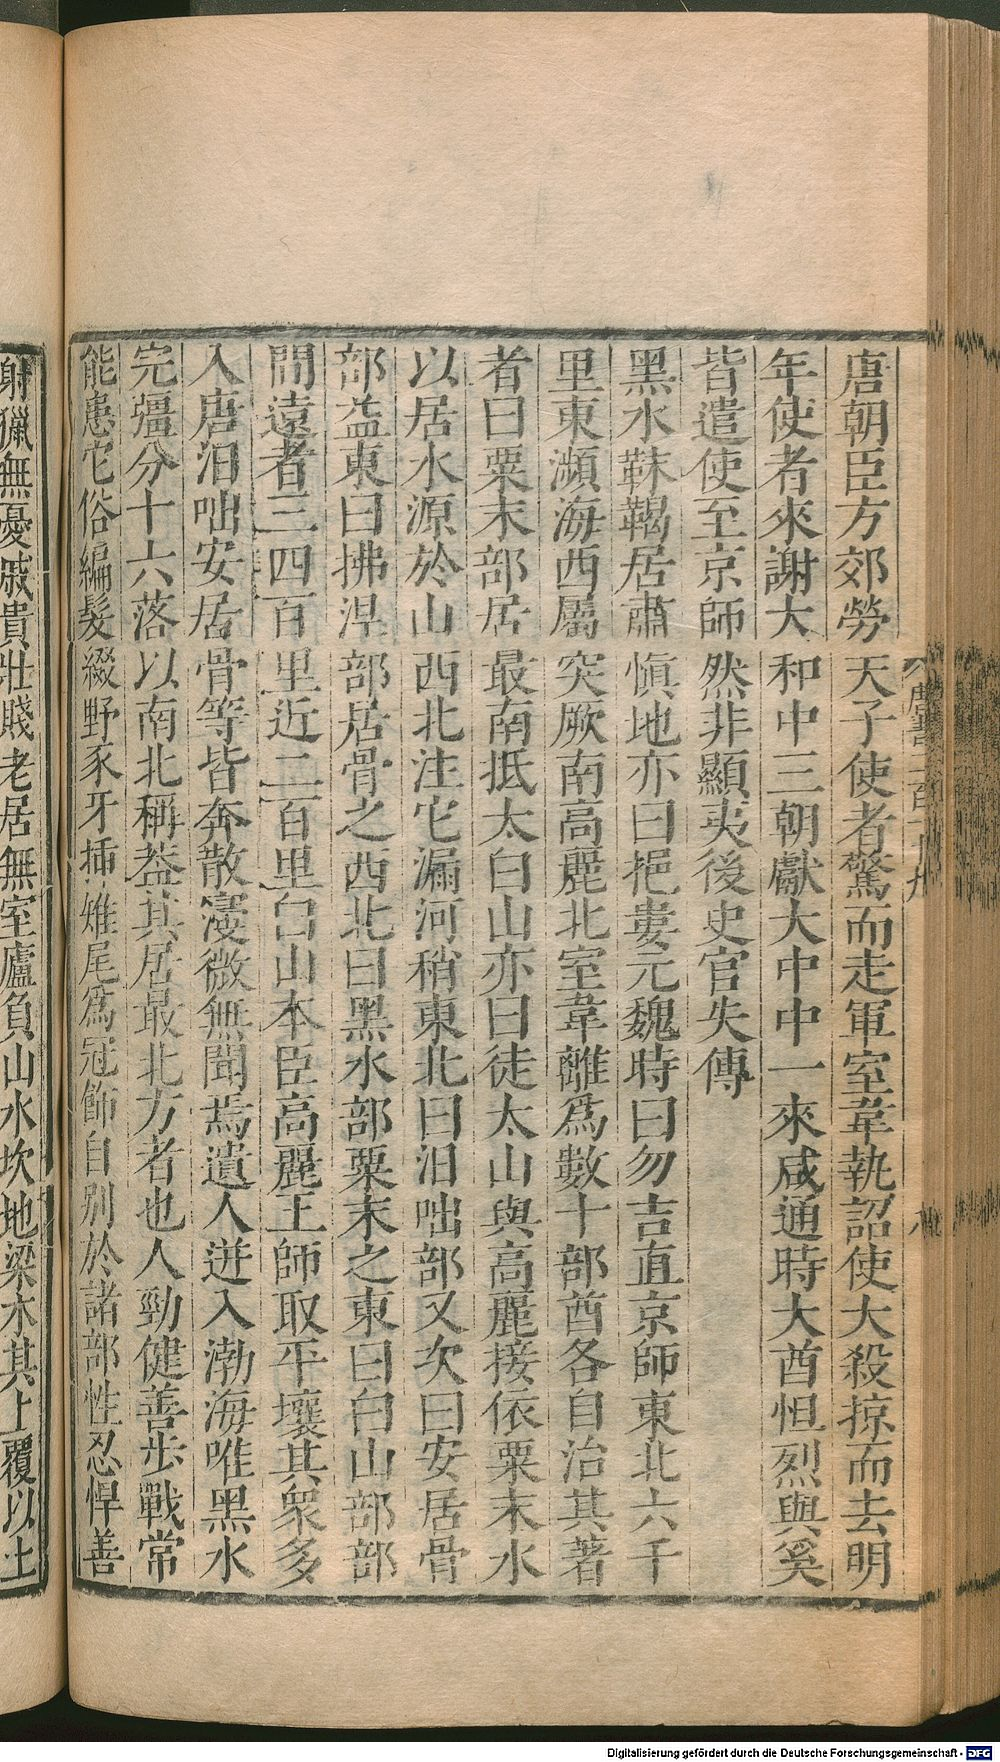 唐朝臣方郊勞天子使者驚而走軍室韋執詔使大殺掠而去明
年使者來謝大和中三朝獻大中中一來咸通時大酋怛烈與奚
皆遣使至京師然非顯夷後史官失傳
黑水靺鞨居肅慎地亦曰挹婁元魏時曰勿吉直京師東北六千
里東瀕海西屬突厥南高麗北室韋離爲數十部酋各自治其著
者曰粟末部居最南抵太白山亦曰徒太山與高麗接依粟末水
以居水源於山西北注它漏河稍東北曰汨咄部又次曰安居骨
部益東曰拂涅部居骨之西北曰黑水部粟末之東曰白山部部
間遠者三四百里近二百里白山本臣高麗王師取平壤其衆多
入唐汨咄安居骨等皆奔散寖微無聞焉遺人迸入渤海唯黑水
完彊分十六落以南北稱蓋其居最北方者也人勁健善步戰常
能患它俗編髮綴野豕牙插雉尾爲冠飾自別於諸部性忍悍善
射獵無憂戚貴壯賤老居無室廬負山水坎地梁木其上覆以土
唐書二百十九
八
Digitalisierung gefördert durch die Deutsche Forschungsgemeinschaft - DFG